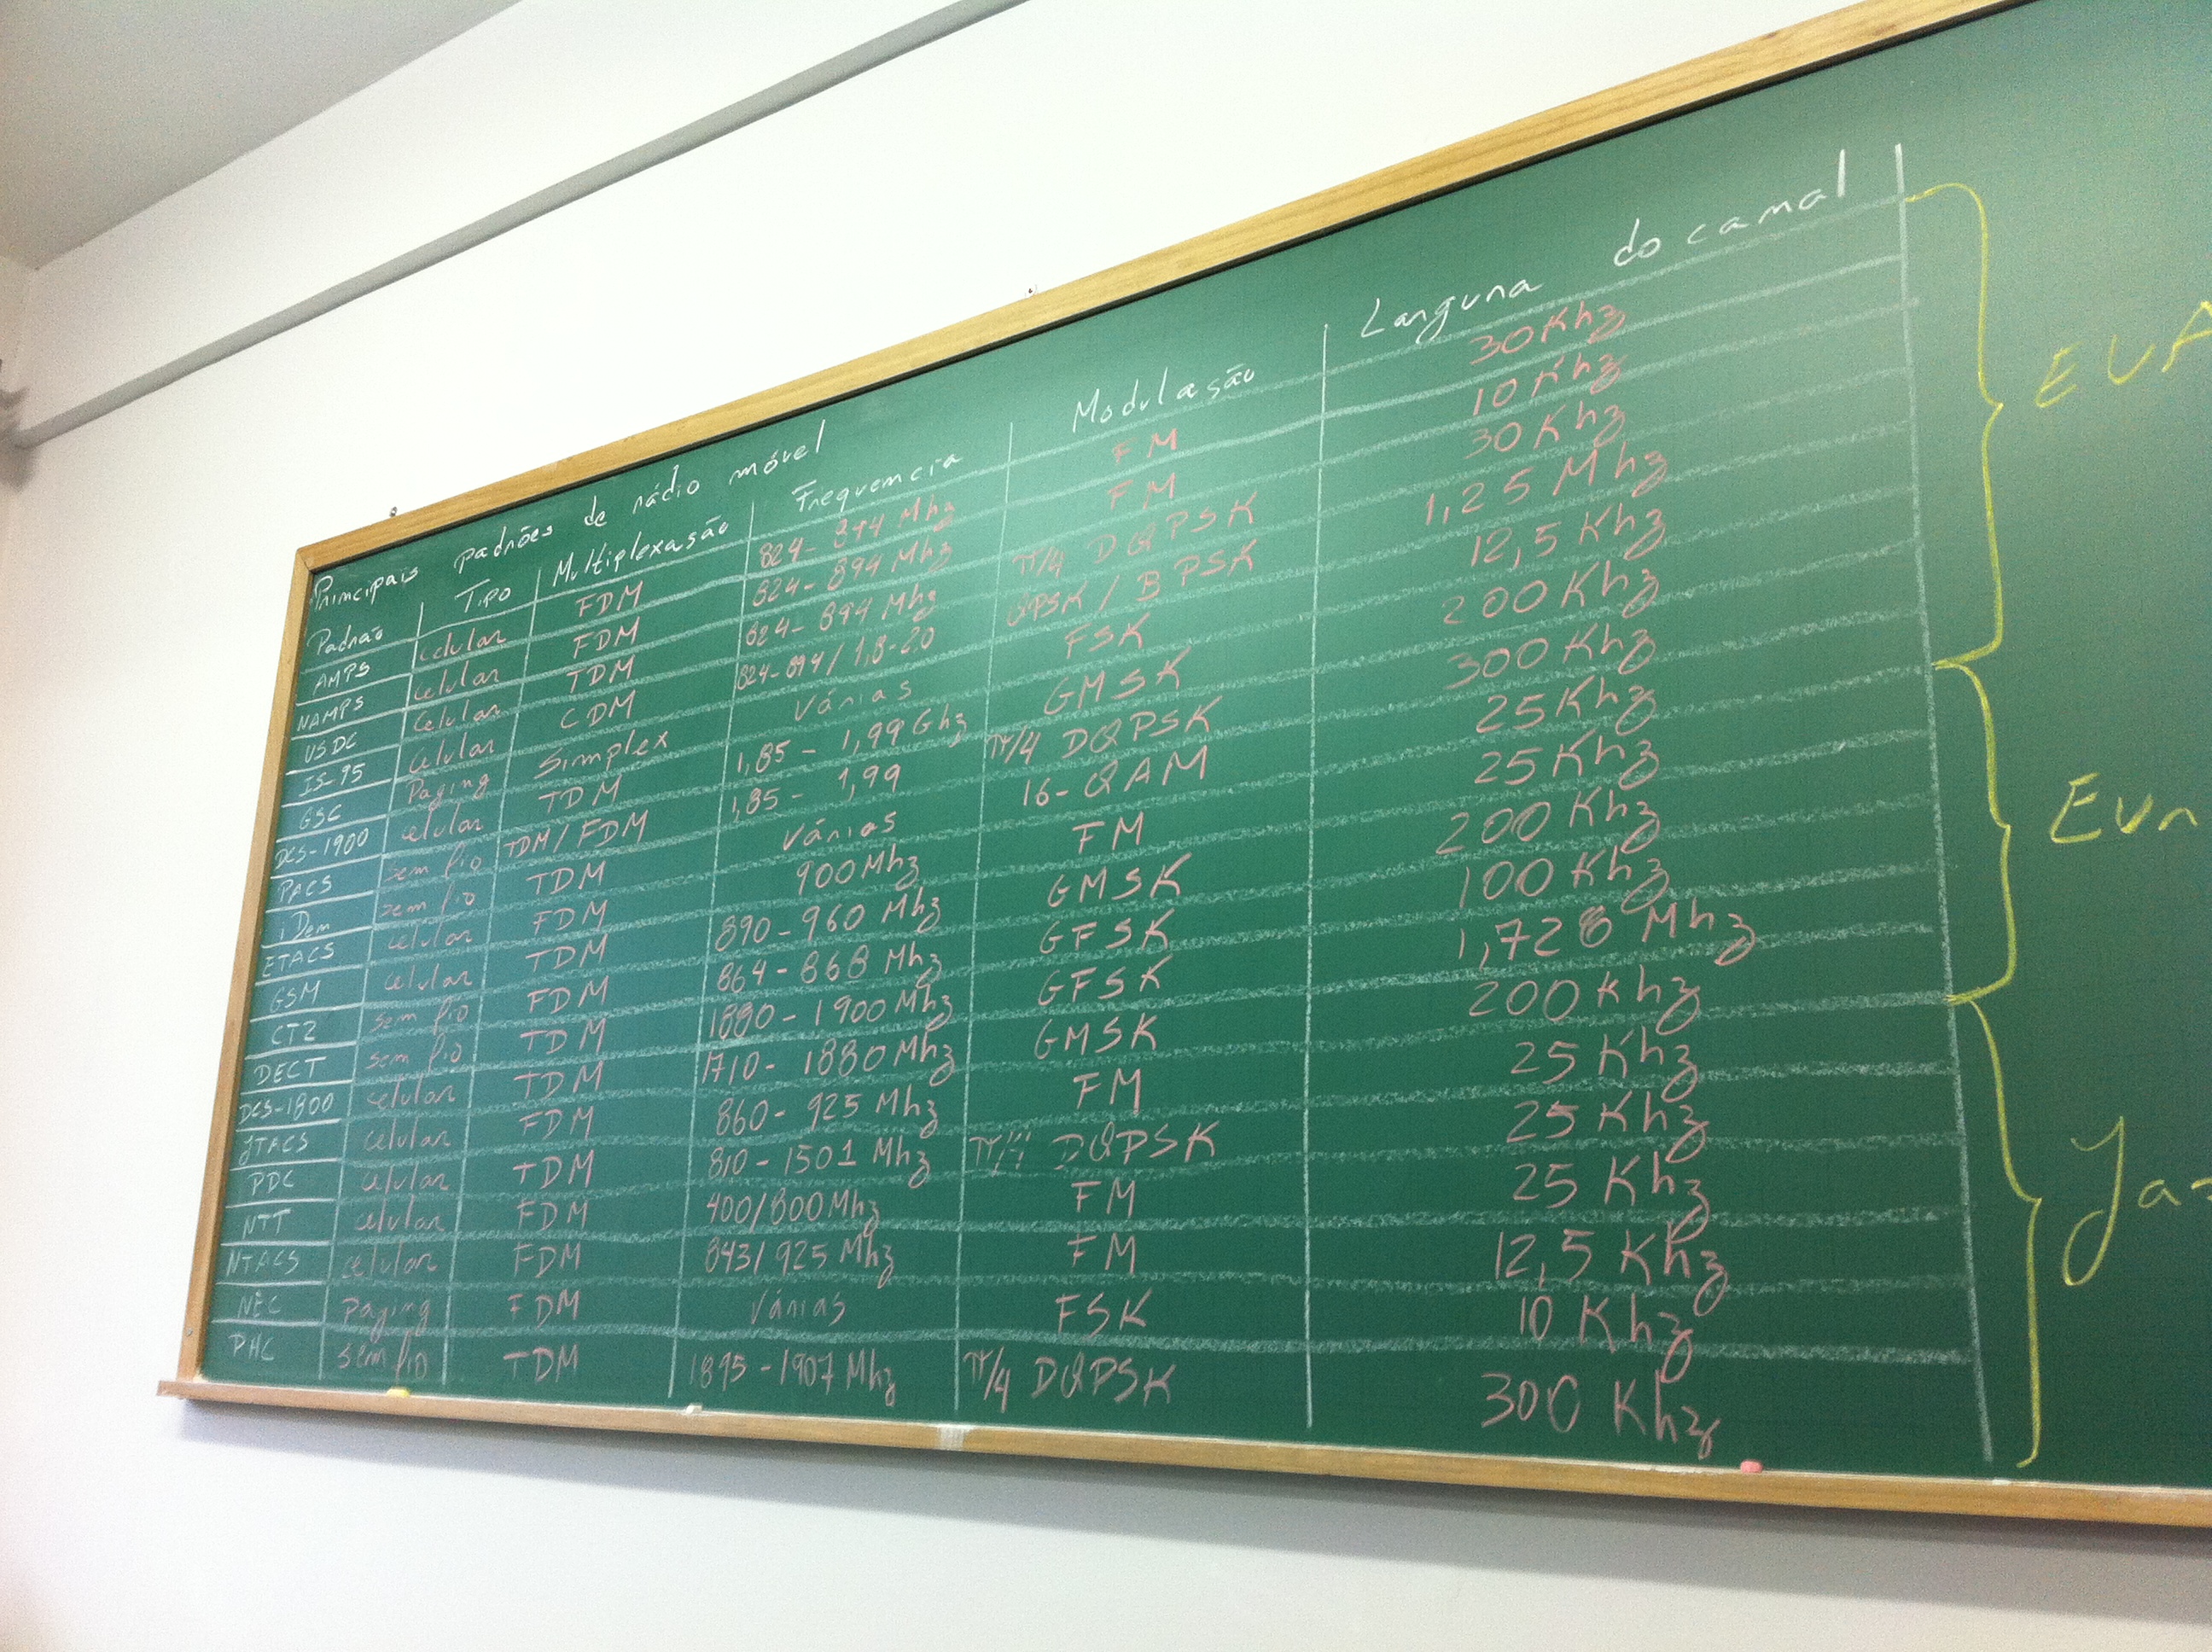 Principais padrões de rádio móvel
Padrão Tipo Multiplexasão Frequencia Modulasão Largura do canal
AMPS celular FDM 824-894 Mhz FM 30 Khz
NAMPS celular FDM 824-894 Mhz FM 10 Khz
USDC celular TDM 824-894 Mhz π/4 DQPSK 30 Khz
IS-95 celular CDM 824-894/1,8-2.0 QPSK/BPSK 1,25 Mhz
GSC Paging Simplex Várias FSK 12,5 Khz
DCS-1900 celular TDM 1,85-1,99 Ghz GMSK 200 Khz
PACS sem fio TDM/FDM 1,85-1,99 π/4 DQPSK 300 Khz
iDen sem fio TDM Várias 16-QAM 25 Khz
ETACS celular FDM 900 Mhz FM 25 Khz
GSM celular TDM 890-960 Mhz GMSK 200 Khz
CT2 sem fio FDM 864-868 Mhz GFSK 100 Khz
DECT sem fio TDM 1880-1900 Mhz GFSK 1,728 Mhz
DCS-1800 celular TDM 1710-1880 Mhz GMSK 200 Khz
JTACS celular FDM 860-925 Mhz FM 25 Khz
PDC celular TDM 810-1501 Mhz DQPSK 25 Khz
NTT celular FDM 400/800 Mhz FM 25 Khz
NTACS celular FDM 843/925 Mhz FM 12,5 Khz
NEC Paging FDM Várias FSK 10 Khz
PHC sem fio TDM 1895-1907 Mhz π/4 DQPSK 300 Khz
EUA
Eur
Ja